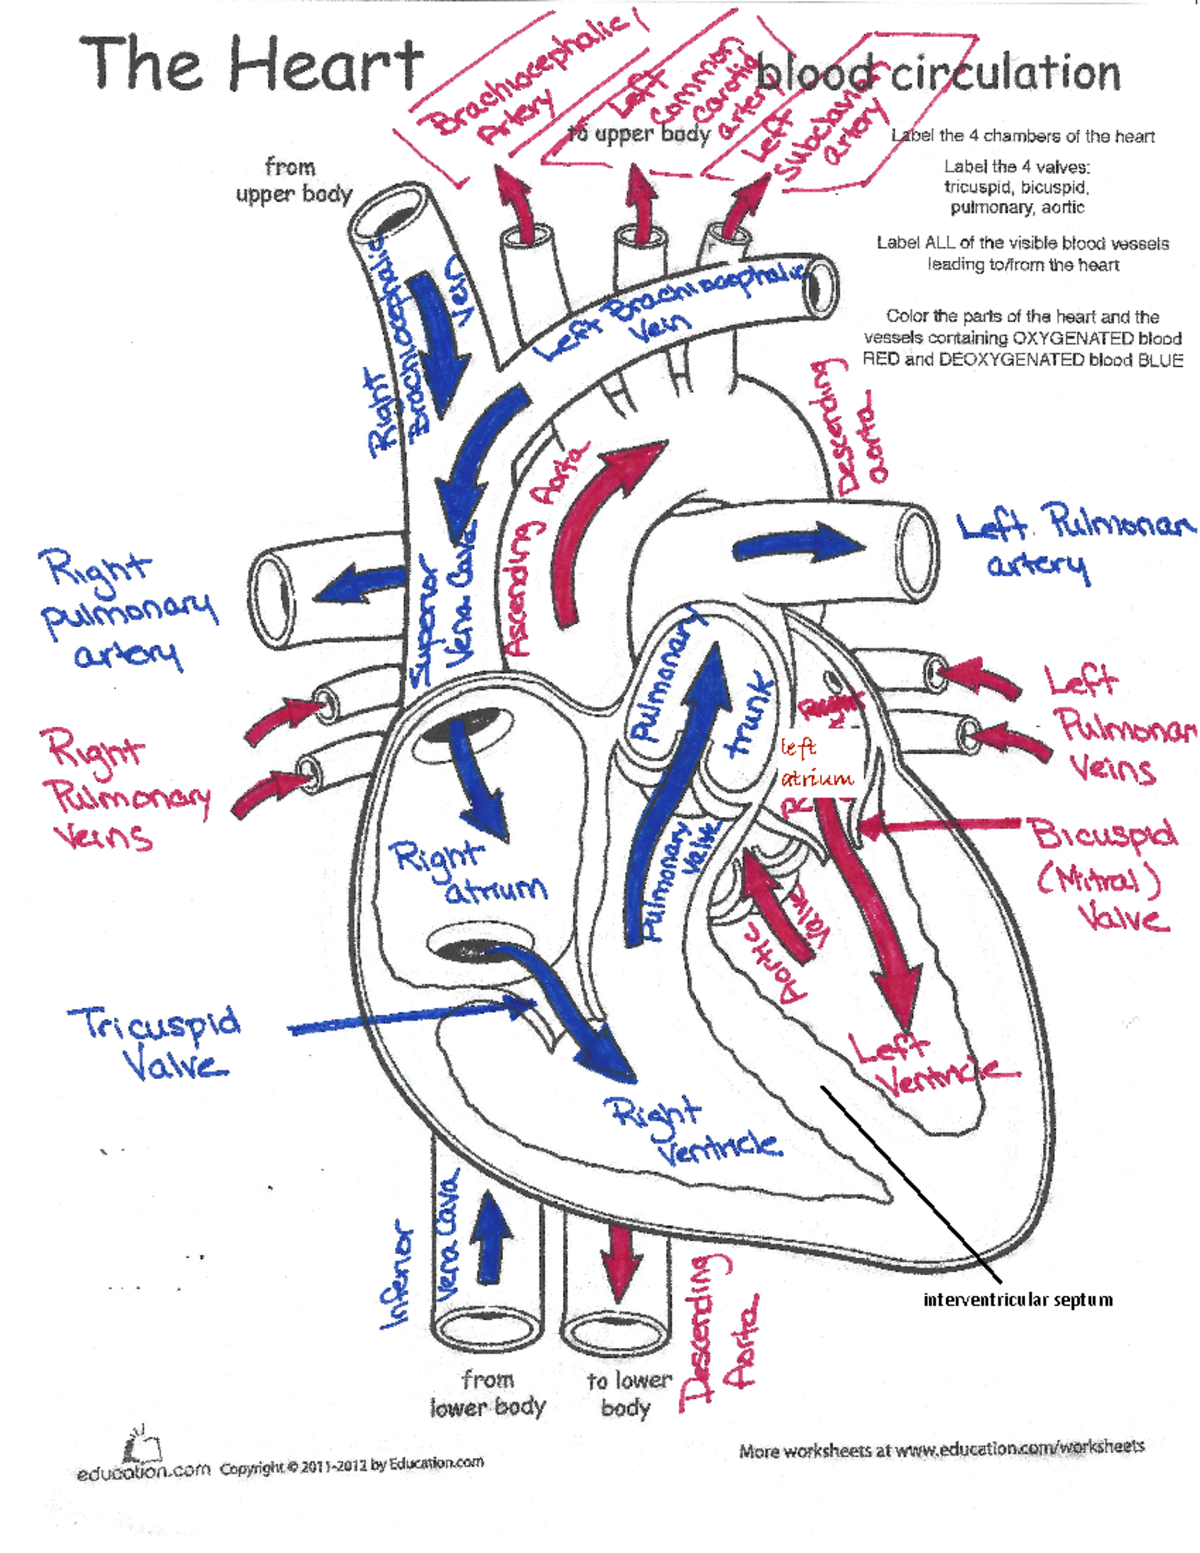 The Heart
blood circulation
Brachiocephalic
Artery
Left
Common
Carotid
artery
Left
Subclavian
artery
to upper body
from
upper body
Label the 4 chambers of the heart
Label the 4 valves:
tricuspid, bicuspid,
pulmonary, aortic
Label ALL of the visible blood vessels
leading to/from the heart
Color the parts of the heart and the
vessels containing OXYGENATED blood
RED and DEOXYGENATED blood BLUE
Right
Brachiocephalic
Vein
Left Brachiocephalic
Vein
Descending
aorta
Ascending Aorta
Superior
Vena Cava
Left Pulmonar
artery
Right
pulmonary
artery
Left
Pulmonar
Veins
Right
Pulmonary
Veins
Pulmonary
trunk
Right
left
atrium
R
Pulmonary
Valve
Bicuspid
(Mitral)
Valve
Right
atrium
Aortic
Valve
Tricuspid
Valve
Left
Ventricle
Right
Ventricle
Inferior
Vena Cava
Descending
Aorta
interventricular septum
from
lower body
to lower
body
education.com Copyright © 2011-2012 by Education.com
More worksheets at www.education.com/worksheets